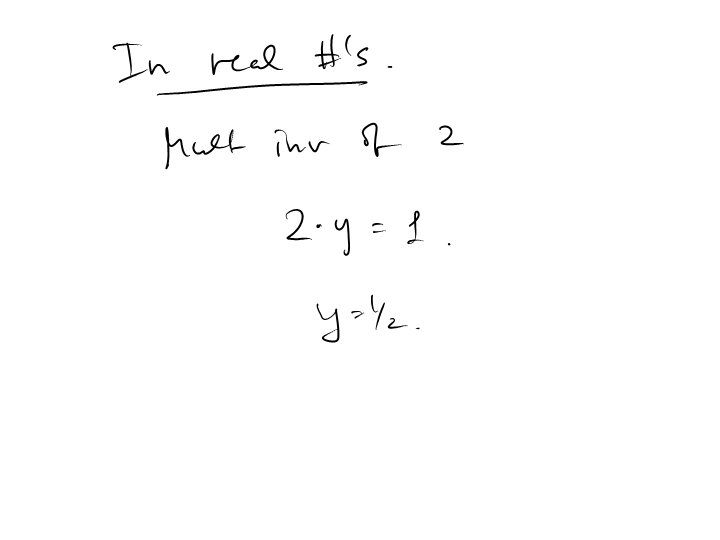 In real #'s.
Mult inv of 2
2·y = 1.
y=1/2.